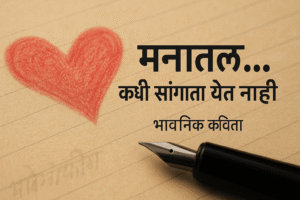 मनातल...
कधी सांगाता येत नाही
भावनिक कविता